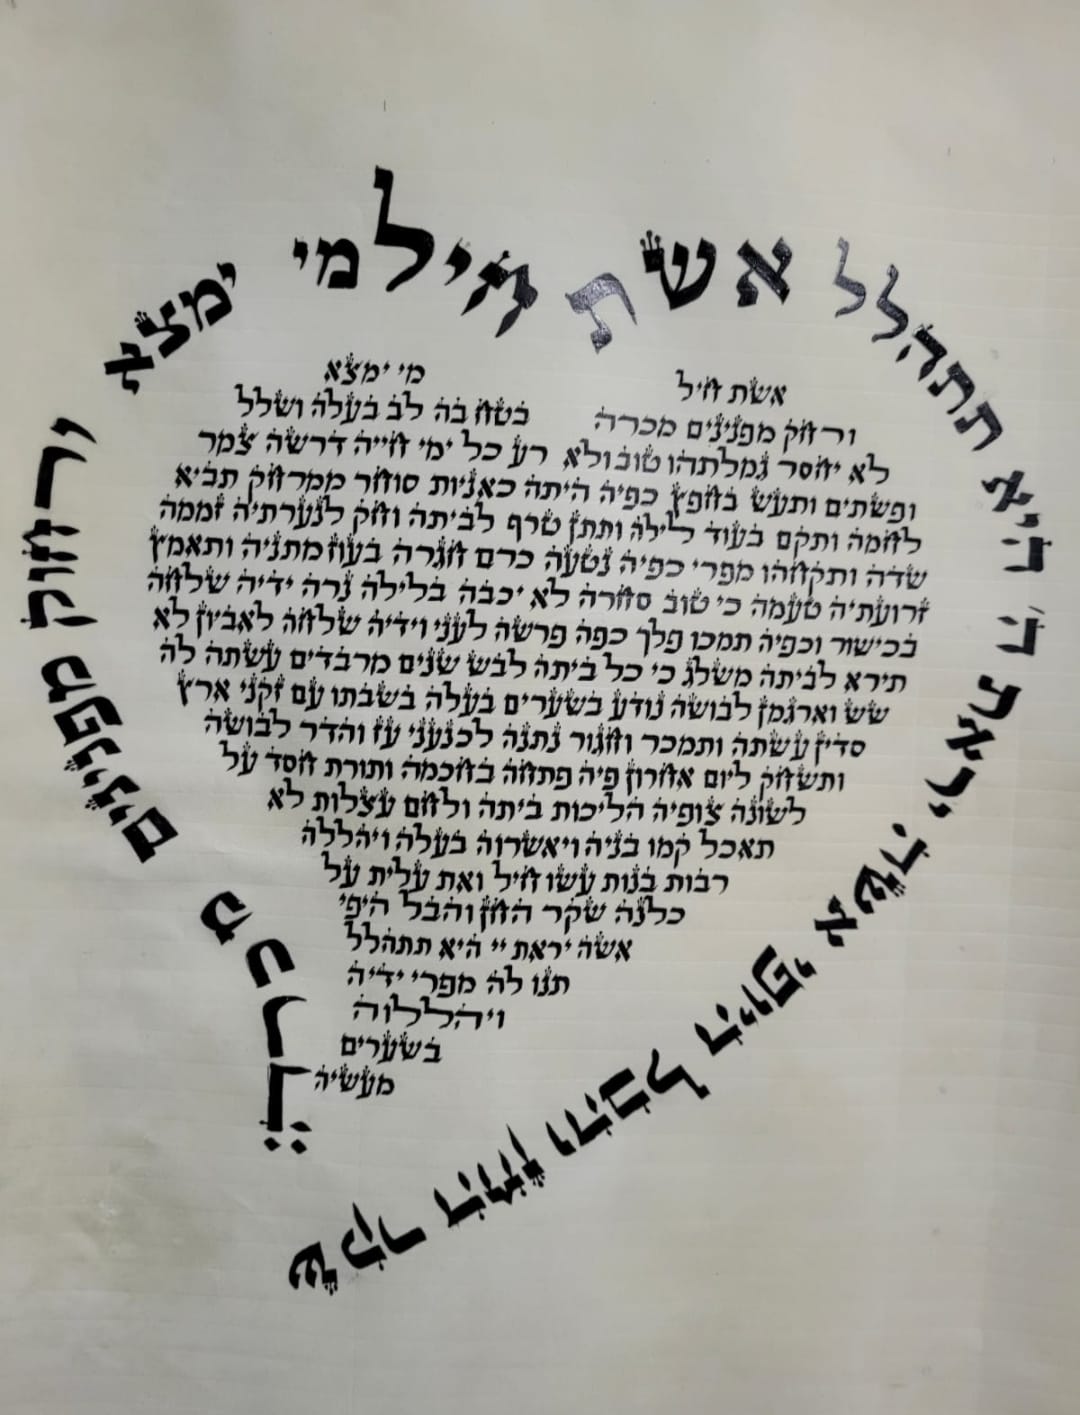 אשת חיל מי ימצא
ורחוק מפנינים
שקר החן והבל היופי אשה יראת ה היא תתהלל
אשת חיל מי ימצא
ורחק מפנינים מכרה בטח בה לב בעלה ושלל
לא יחסר גמלתהו טוב ולא רע כל ימי חייה דרשה צמר
ופשתים ותעש בחפץ כפיה היתה כאניות סוחר ממרחק תביא
לחמה ותקם בעוד לילה ותתן טרף לביתה וחק לנערתיה זממה
שדה ותקחהו מפרי כפיה נטעה כרם חגרה בעוז מתניה ותאמץ
זרועתיה טעמה כי טוב סחרה לא יכבה בלילה נרה ידיה שלחה
בכישור וכפיה תמכו פלך כפה פרשה לעני וידיה שלחה לאביון לא
תירא לביתה משלג כי כל ביתה לבש שנים מרבדים עשתה לה
שש וארגמן לבושה נודע בשערים בעלה בשבתו עם זקני ארץ
סדין עשתה ותמכר וחגור נתנה לכנעני עז והדר לבושה
ותשחק ליום אחרון פיה פתחה בחכמה ותורת חסד על
לשונה צופיה הליכות ביתה ולחם עצלות לא
תאכל קמו בניה ויאשרוה בעלה ויהללה
רבות בנות עשו חיל ואת עלית על
כלנה שקר החן והבל היפי
אשה יראת יי היא תתהלל
תנו לה מפרי ידיה
ויהללוה
בשערים
מעשיה